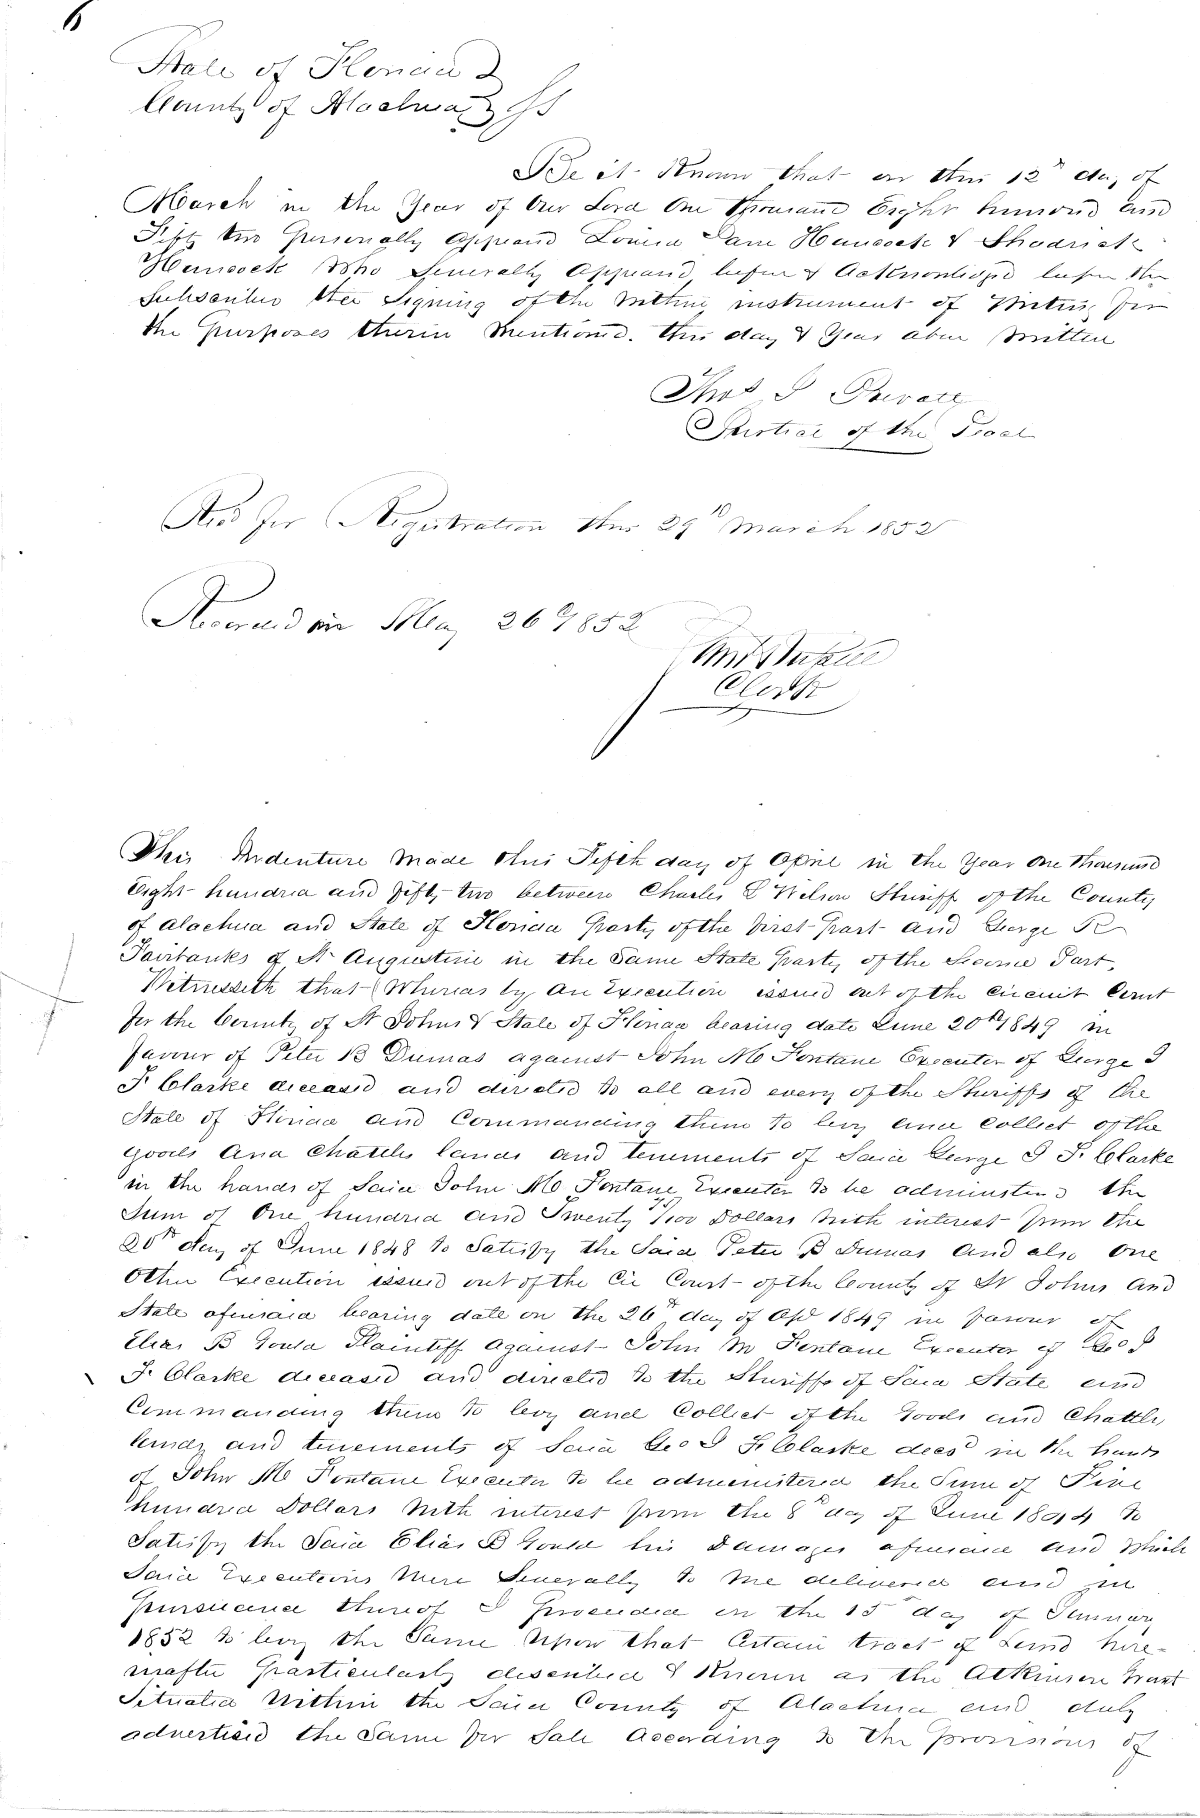 6
State of Florida }
County of Alachua } SS
Be it Known that on this 12th day of
March in the Year of Our Lord One thousand Eight hundred and
Fifty two Personally Appeard Louisa Jane Hancock & Shadrick
Hancock Who Severally Appeard before & Acknowledged before the
Subscriber the Signing of the within instrument of Writing for
the Purposes therin Mentiond. this day & Year above Written
Thos J Prevatt
Justice of the Peace
Recd for Registration this 29th March 1852
Recorded on May 26th 1852
Clerk
This Indenture Made this Fifth day of April in the Year One thousand
Eight hundred and fifty two between Charles L Wilson Sheriff of the County
of Alachua and State of Florida Party of the first part and George R
Fairbanks of St Augustine in the Same State Party of the Second Part,
Witnesseth that Whereas by An Execution issued out of the Circuit Court
for the County of St Johns & State of Florida bearing date June 20th 1849 in
favour of Peter B Dumas against John M Fontane Executor of George J
F Clarke deceased and directed to all and every of the Sheriffs of the
State of Florida and Commanding them to levy and Collect of the
goods And Chattels lands and tenements of Said George J F. Clarke
in the hands of Said John M Fontane Executor to be administerd the
Sum of One hundred and Twenty /100 Dollars With interest from the
20th day of June 1848 to Satisfy the Said Peter B Dumas And also One
Other Execution issued out of the Cir Court of the County of St Johns And
State aforesaid bearing date on the 26th day of Apl 1849 in favour of
Elias B Gould Plaintiff Against John M Fontane Executor of Geo J
F Clarke deceased and directed to the Sheriffs of Said State and
Commanding them to levy and Collect of the Goods and Chattels,
lands and tenements of Said Geo J F Clarke decsd in the hands
of John M Fontane Executor to be administered the Sum of Five
hundred Dollars With interest from the 8th day of June 1844 to
Satisfy the Said Elias B Gould his Damages aforesaid and Which
Said Executions Were Severally to Me delivered and in
pursuance thereof I Proceeded on the 15th day of January
1852 to levy the Same Upon that Certain tract of Land here-
inafter Particularly described & Known as the Atkinson Grant
Situated Within the Said County of Alachua and duly
advertised the Same for Sale According to the provisions of